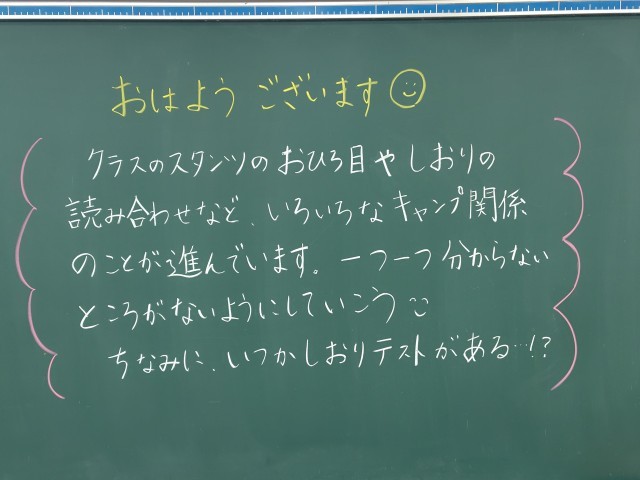 おはようございます
クラスのスタンツのおひろ目やしおりの
読み合わせなど、いろいろなキャンプ関係
のことが進んでいます。一つ一つ分からない
ところがないようにしていこう
ちなみに、いつかしおりテストがある…!?